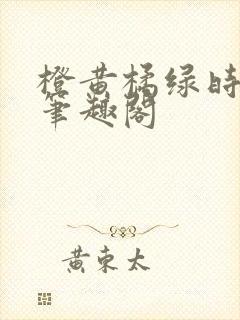 橙黄橘绿时
笔趣阁
黄东太